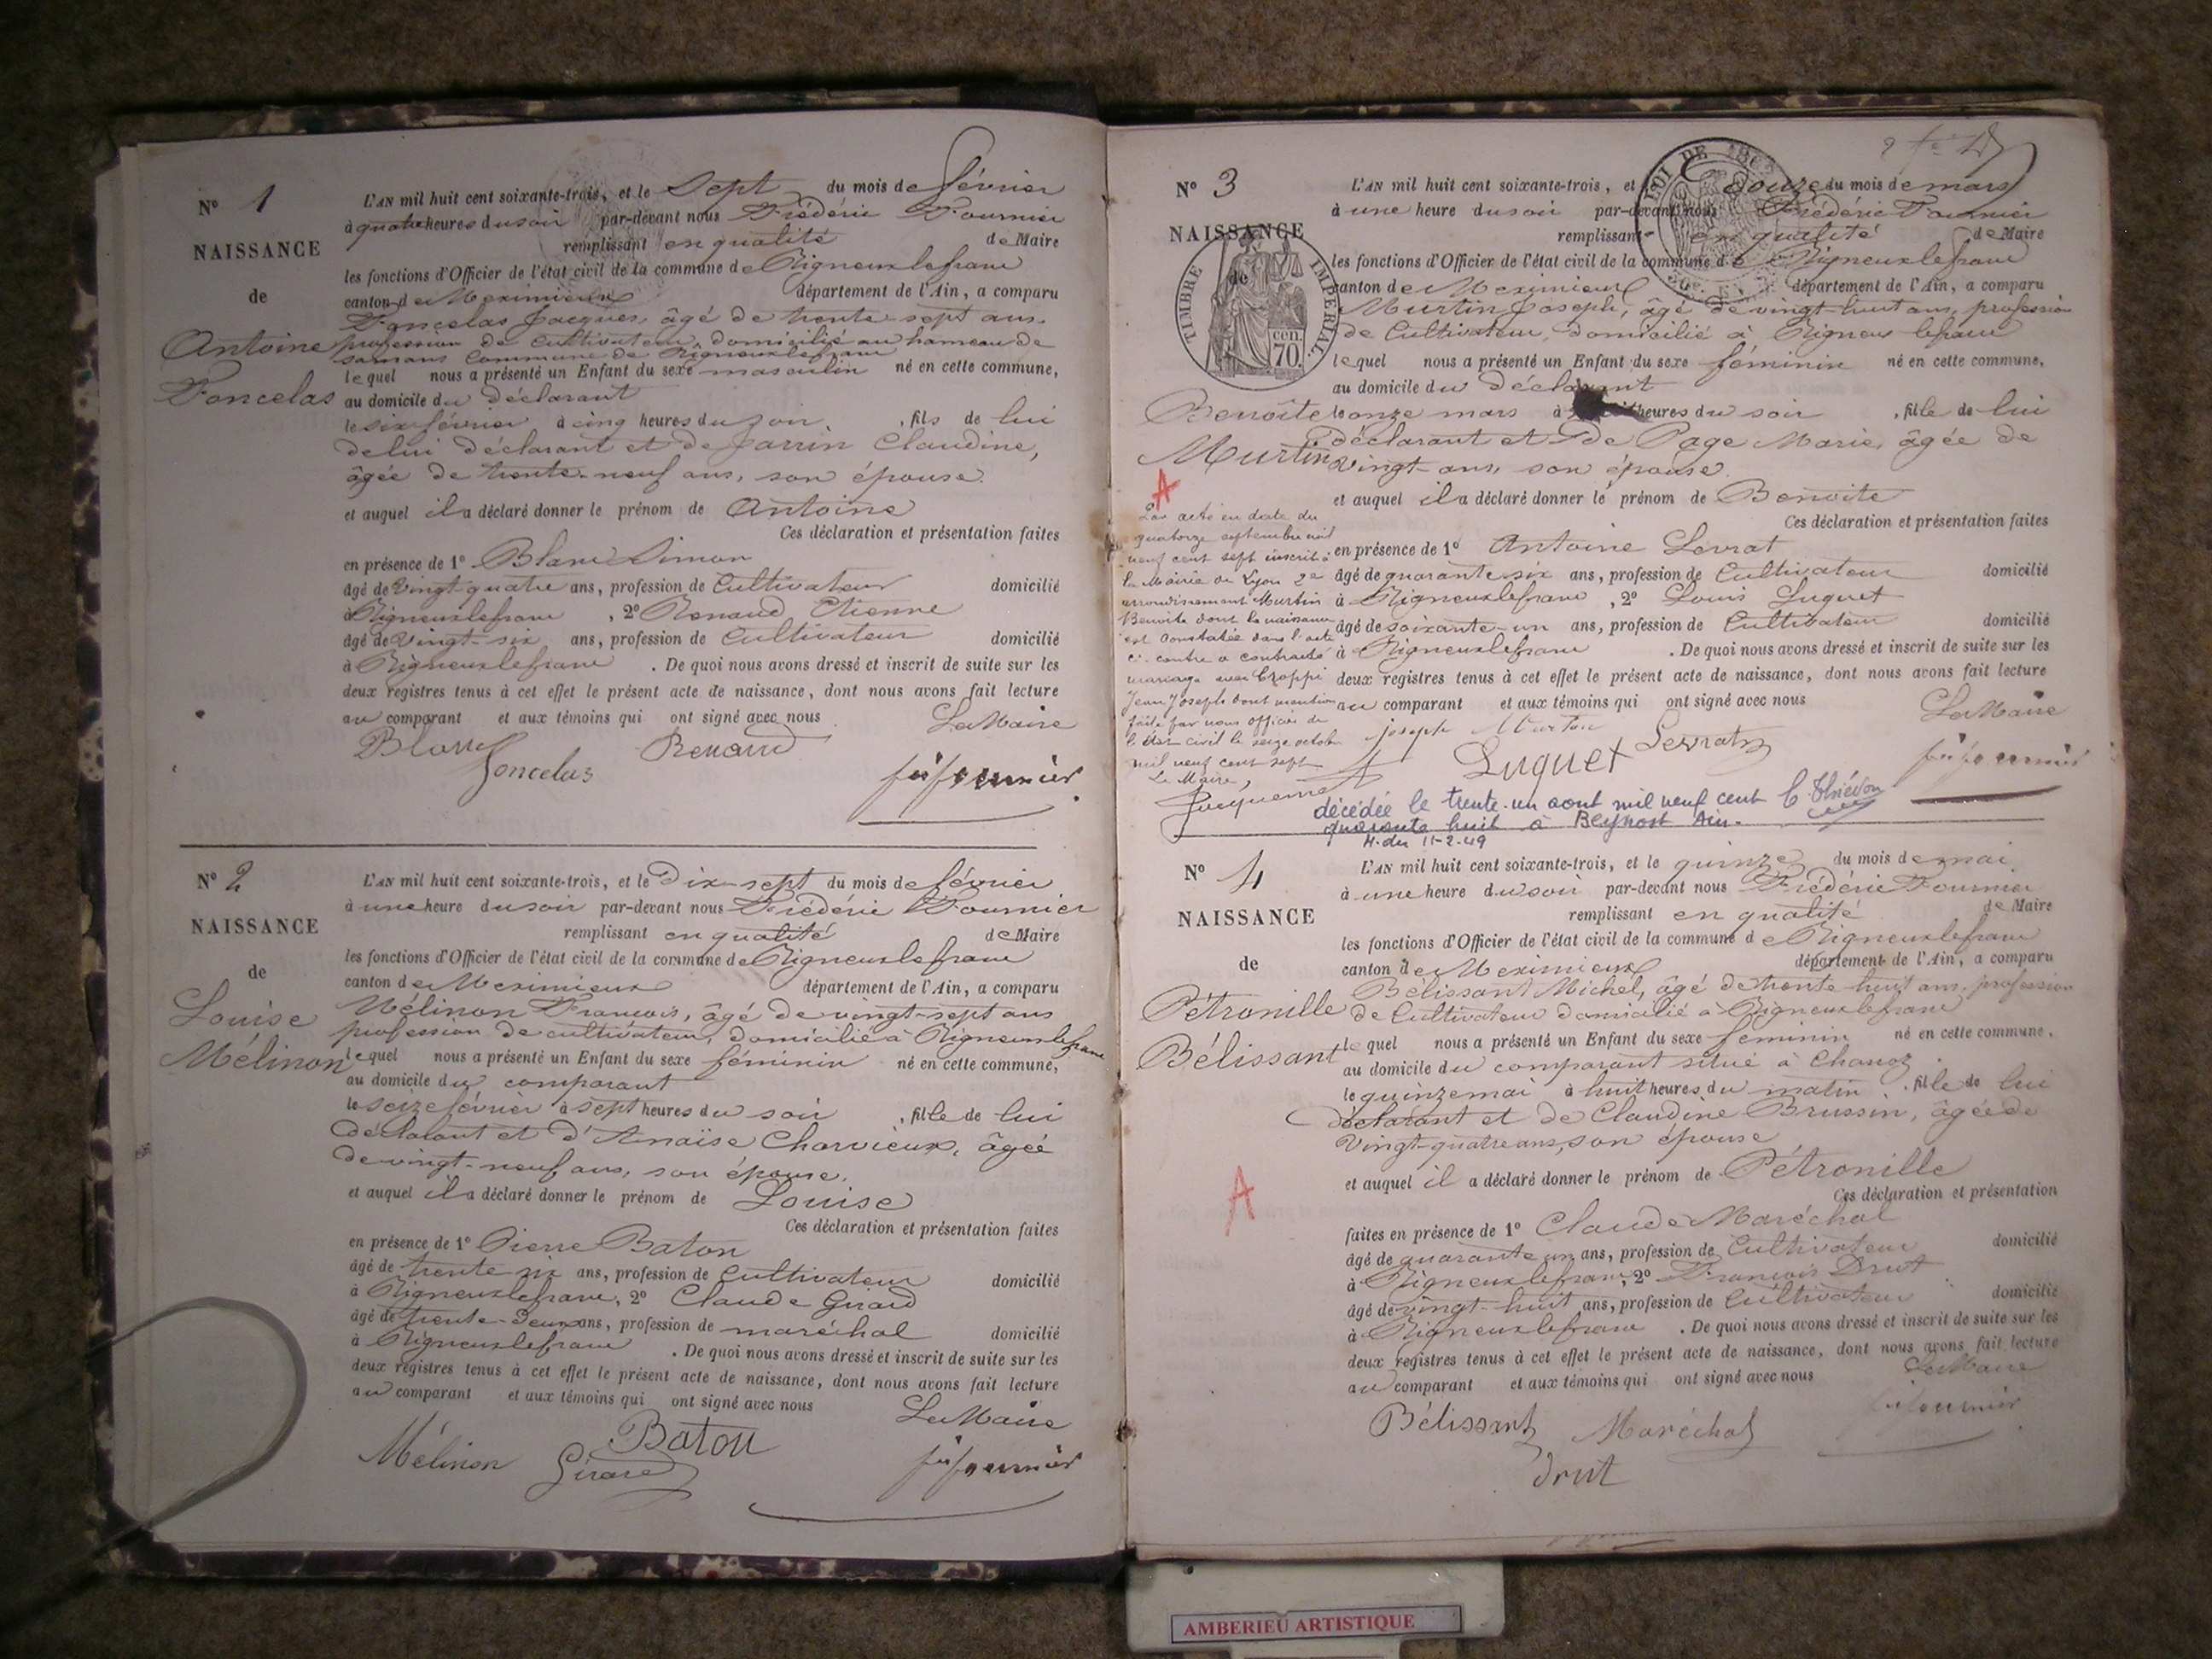 Nº 1
NAISSANCE
de
Antoine
Foncelas
L'AN mil huit cent soixante-trois, et le Sept du mois de février
à quatre heures du soir par-devant nous Frédéric Fournier
remplissant en qualité de Maire
les fonctions d'Officier de l'état civil de la commune de Rigneuxlefranc
canton de Meximieux département de l'Ain, a comparu
Foncelas Jacques, âgé de trente-sept ans,
profession de cultivateur, domicilié au hameau de
Samans Commune de Rigneuxlefranc
lequel nous a présenté un Enfant du sexe masculin né en cette commune,
au domicile du déclarant
le six février à cinq heures du soir, fils de lui
de lui déclarant et de Jarrin Claudine,
âgée de trente-neuf ans, son épouse.
et auquel il a déclaré donner le prénom de Antoine
Ces déclaration et présentation faites
en présence de 1º Blanc Simon
âgé de vingt-quatre ans, profession de Cultivateur domicilié
à Rigneuxlefranc, 2º Renaud Etienne
âgé de vingt-six ans, profession de Cultivateur domicilié
à Rigneuxlefranc. De quoi nous avons dressé et inscrit de suite sur les
deux registres tenus à cet effet le présent acte de naissance, dont nous avons fait lecture
au comparant et aux témoins qui ont signé avec nous
Le Maire
Blanc Renaud
Foncelas
fournier
Nº 2
NAISSANCE
de
Louise
Mélinon
L'AN mil huit cent soixante-trois, et le Dix-sept du mois de février
à une heure du soir par-devant nous Frédéric Fournier
remplissant en qualité de Maire
les fonctions d'Officier de l'état civil de la commune de Rigneuxlefranc
canton de Meximieux département de l'Ain, a comparu
Mélinon François, âgé de vingt-sept ans
profession de cultivateur, domicilié à Rigneuxlefranc
lequel nous a présenté un Enfant du sexe féminin né en cette commune,
au domicile du comparant
le seize février à sept heures du soir, fille de lui
déclarant et d'Anaïse Charvieux, âgée
de vingt-neuf ans, son épouse.
et auquel il a déclaré donner le prénom de Louise
Ces déclaration et présentation faites
en présence de 1º Pierre Baton
âgé de trente six ans, profession de Cultivateur domicilié
à Rigneuxlefranc, 2º Claude Girard
âgé de trente-deux ans, profession de maréchal domicilié
à Rigneuxlefranc. De quoi nous avons dressé et inscrit de suite sur les
deux registres tenus à cet effet le présent acte de naissance, dont nous avons fait lecture
au comparant et aux témoins qui ont signé avec nous
Le Maire
Mélinon Girard Baton
fournier
Nº 3
NAISSANCE
de
TIMBRE IMPÉRIAL
70. CEN.
LOI DE 1862
Benoîte
Murtin
L'AN mil huit cent soixante-trois, et le douze du mois de mars
à une heure du soir par-devant nous Frédéric Fournier
remplissant en qualité de Maire
les fonctions d'Officier de l'état civil de la commune de Rigneuxlefranc
canton de Meximieux département de l'Ain, a comparu
Murtin Joseph, âgé de vingt-huit ans, profession
de Cultivateur, domicilié à Rigneux lefranc
lequel nous a présenté un Enfant du sexe féminin né en cette commune,
au domicile du déclarant
le onze mars à heures du soir, fille de lui
déclarant et de Page Marie, âgée de
vingt-ans, son épouse.
et auquel il a déclaré donner le prénom de Benoite
Ces déclaration et présentation faites
en présence de 1º Antoine Levrat
âgé de quarante six ans, profession de Cultivateur domicilié
à Rigneuxlefranc, 2º Louis Luguet
âgé de soixante-un ans, profession de Cultivateur domicilié
à Rigneuxlefranc. De quoi nous avons dressé et inscrit de suite sur les
deux registres tenus à cet effet le présent acte de naissance, dont nous avons fait lecture
au comparant et aux témoins qui ont signé avec nous
Le Maire
joseph Murtin
Luguet Levrat
fournier
A
Par acte en date du
quatorze septembre mil
neuf cent sept inscrit à
la Mairie de Lyon 2e
arrondissement Murtin
Benoite dont la naissance
est constatée dans l'acte
ci-contre a contracté
mariage avec Choppi
Jean Joseph dont mention
faite par nous officier de
l'état civil le seize octobre
mil neuf cent sept
Le Maire,
Jacquemet
décédée le trente-un aout mil neuf cent
quarante huit à Beynost Ain.
11-2-49
Nº 4
NAISSANCE
de
Pétronille
Bélissant
L'AN mil huit cent soixante-trois, et le quinze du mois de mai
à une heure du soir par-devant nous Frédéric Fournier
remplissant en qualité de Maire
les fonctions d'Officier de l'état civil de la commune de Rigneuxlefranc
canton de Meximieux département de l'Ain, a comparu
Bélissant Michel, âgé de trente-huit ans, profession
de Cultivateur domicilié à Rigneuxlefranc
lequel nous a présenté un Enfant du sexe féminin né en cette commune.
au domicile du comparant situé à Chanoz
le quinze mai à huit heures du matin, fille de lui
déclarant et de Claudine Brussin, âgée de
Vingt-quatre ans, son épouse
et auquel il a déclaré donner le prénom de Pétronille
Ces déclaration et présentation
faites en présence de 1º Claude Maréchal
âgé de quarante un ans, profession de Cultivateur domicilié
à Rigneuxlefranc, 2º François Drut
âgé de vingt-huit ans, profession de Cultivateur domicilié
à Rigneuxlefranc. De quoi nous avons dressé et inscrit de suite sur les
deux registres tenus à cet effet le présent acte de naissance, dont nous avons fait lecture
au comparant et aux témoins qui ont signé avec nous
Le Maire
A
Bélissant Maréchal
fournier
Drut
AMBERIEU ARTISTIQUE